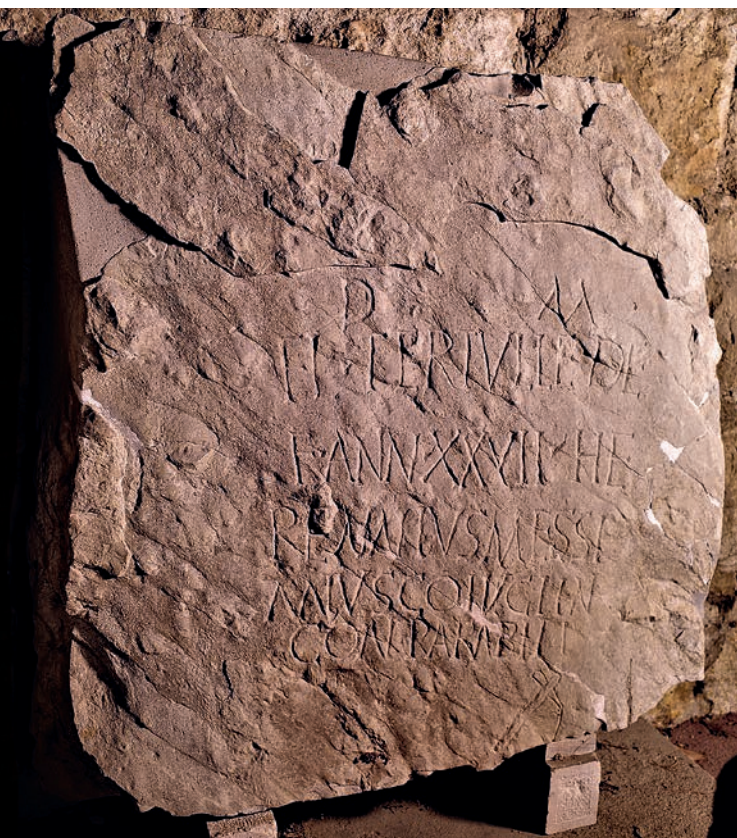 D M
FL TERTVLLE DE
F ANN XXVII HE
RENNIVS MESSI
ANVS COIVGI IN
COMPARABILI